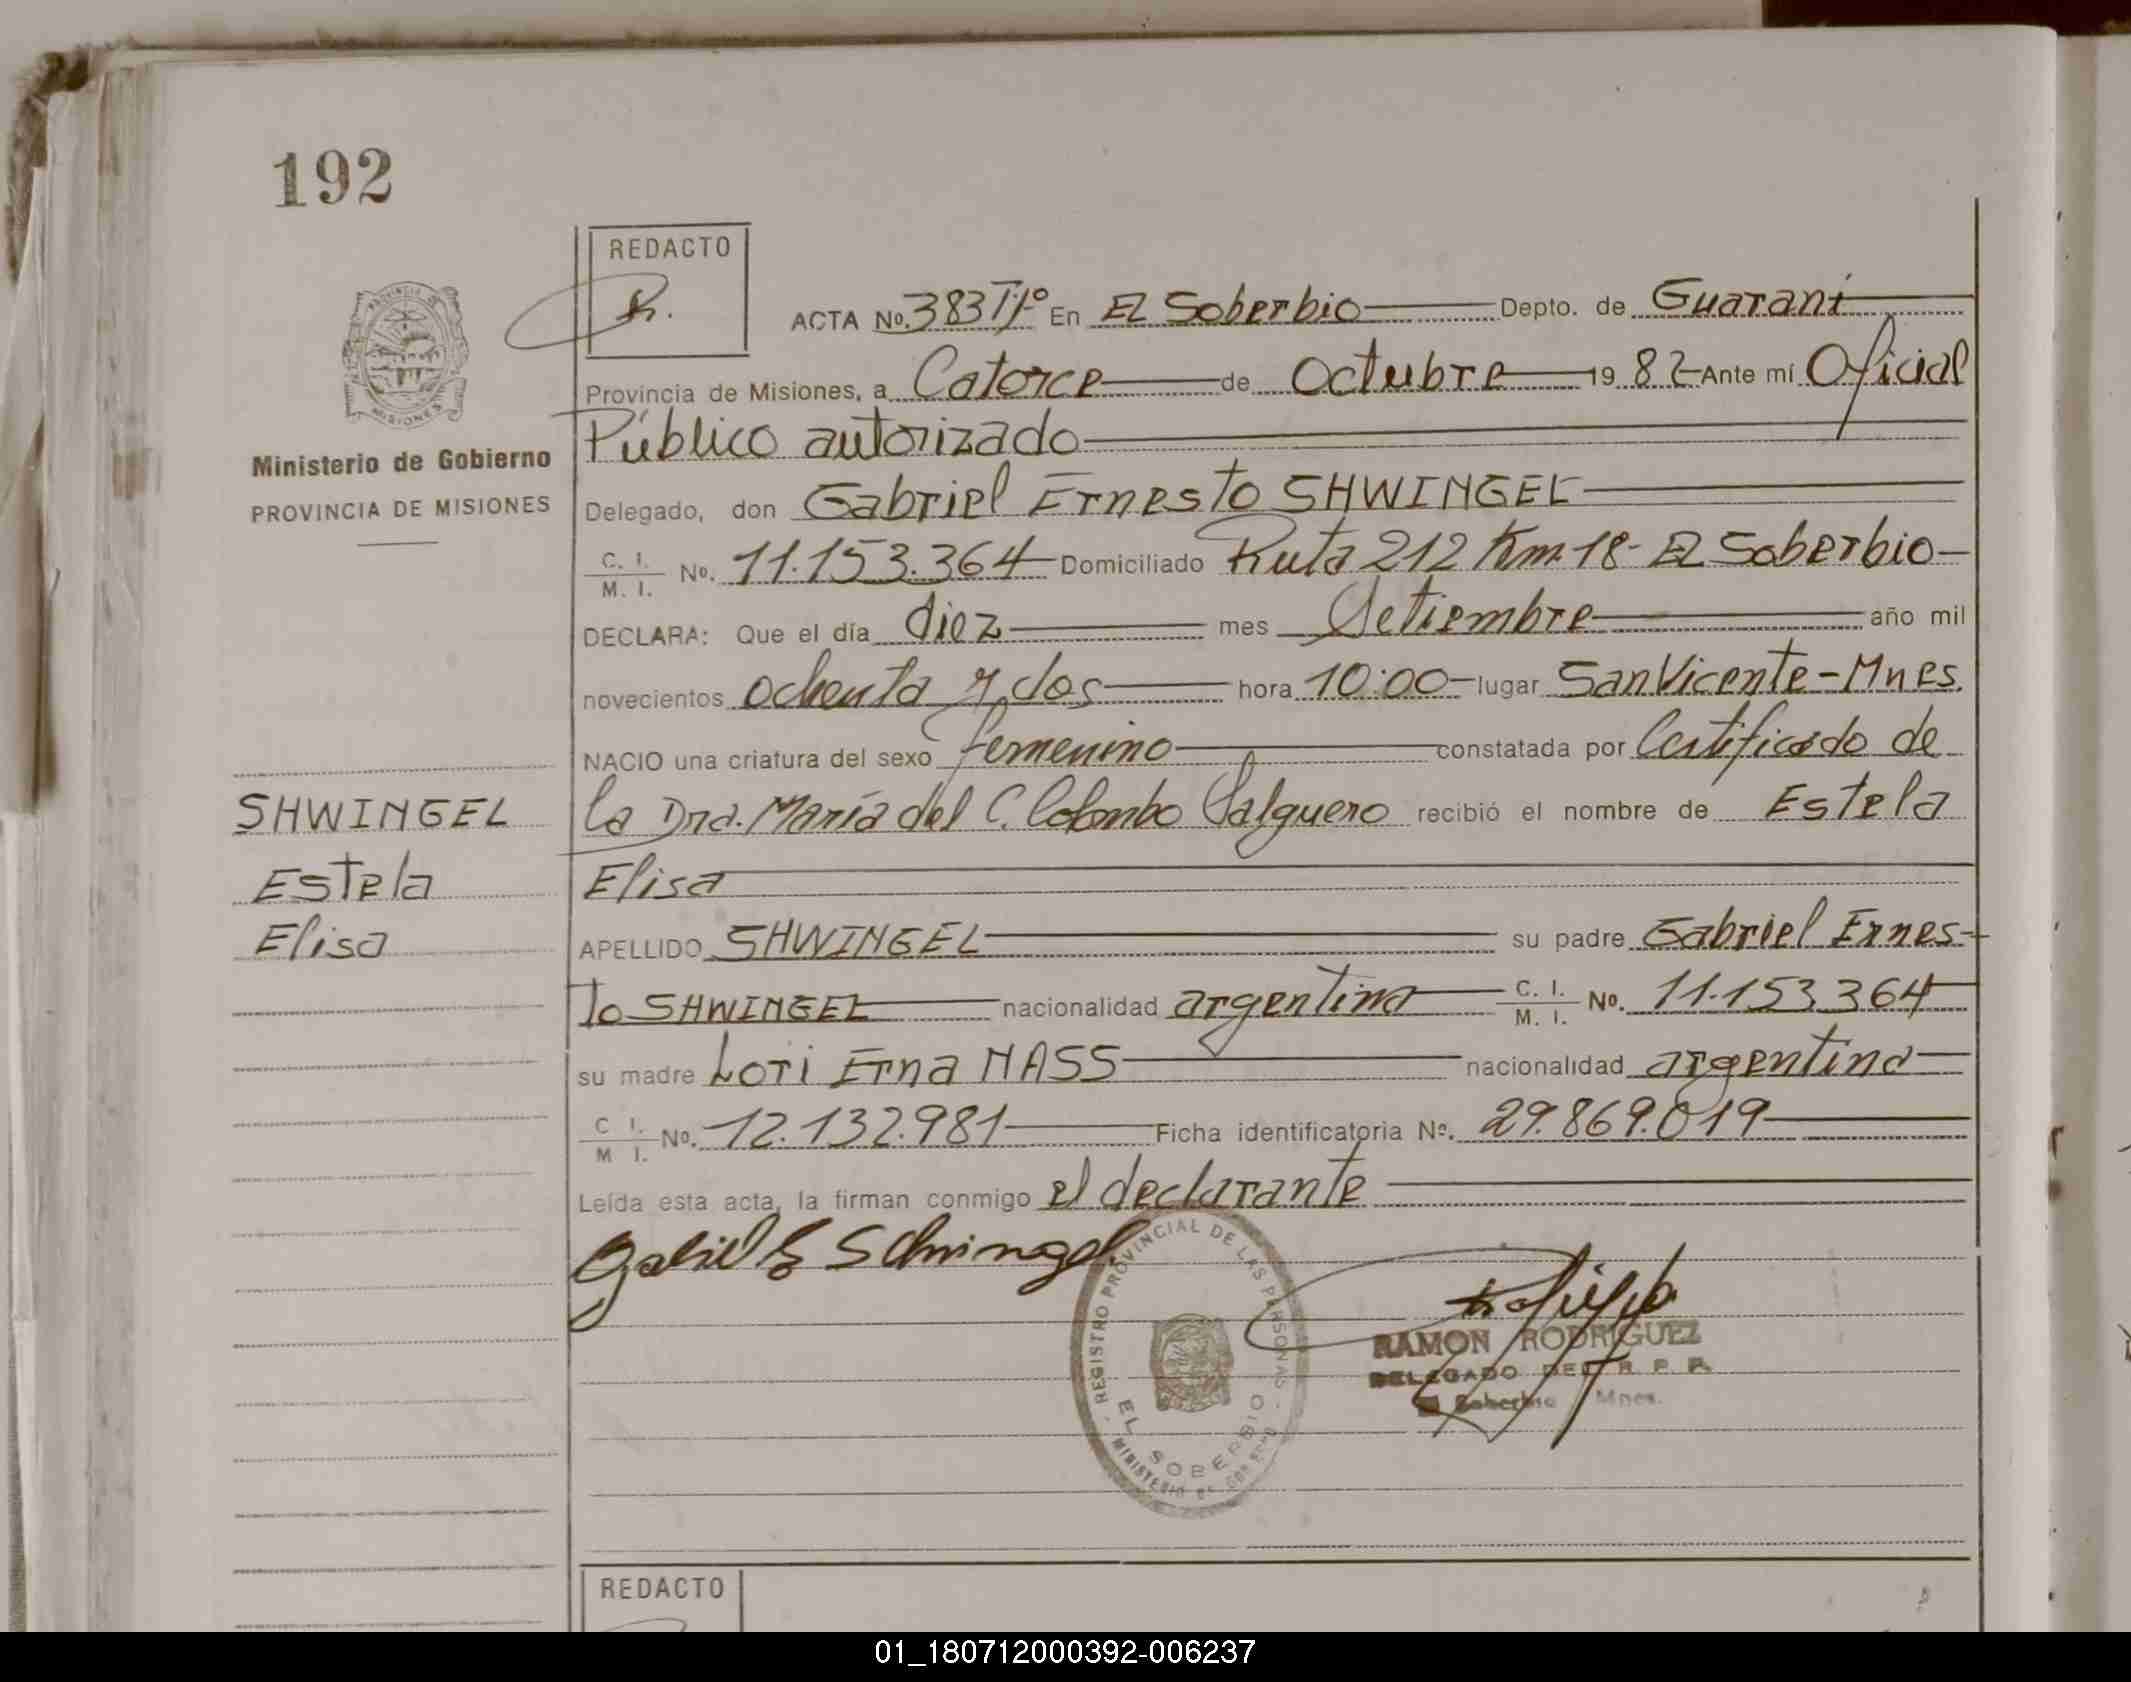 192
REDACTO
R.
PROVINCIA DE
MISIONES
Ministerio de Gobierno
PROVINCIA DE MISIONES
ACTA No. 383 Tº1º En El Soberbio Depto. de Guaraní
Provincia de Misiones, a Catorce de Octubre 1982 Ante mí Oficial
Público autorizado
Delegado, don Gabriel Ernesto SHWINGEL
C. I. / M. I. No. 11.153.364 Domiciliado Ruta 212 Km. 18 - El Soberbio
DECLARA: Que el día diez mes Setiembre año mil
novecientos ochenta y dos hora 10:00 lugar San Vicente - Mnes.
NACIO una criatura del sexo femenino constatada por Certificado de
la Dra. María del C. Colombo Salguero recibió el nombre de Estela
Elisa
APELLIDO SHWINGEL su padre Gabriel Ernes-
to SHWINGEL nacionalidad argentina C. I. / M. I. No. 11.153.364
su madre Lori Erna NASS nacionalidad argentina
C I. / M I. No. 12.132.981 Ficha identificatoria No. 29.869.019
Leída esta acta, la firman conmigo el declarante
SHWINGEL
Estela
Elisa
Gabriel E Schwingel
REGISTRO PROVINCIAL DE LAS PERSONAS
EL SOBERBIO
MINISTERIO DE GOBIERNO
RAMON RODRIGUEZ
DELEGADO DEL R. P. P.
El Soberbio Mnes.
REDACTO
01_180712000392-006237